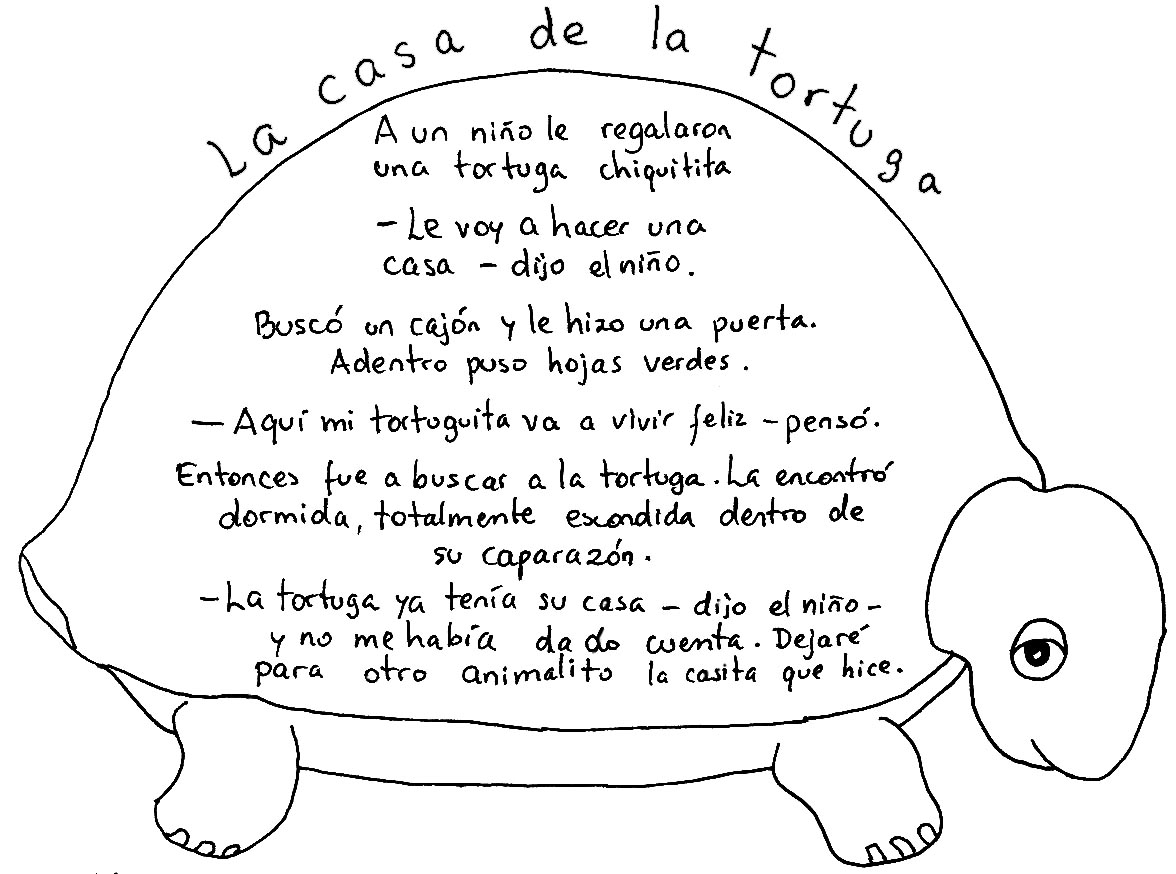 La casa de la tortuga
A un niño le regalaron
una tortuga chiquitita
- Le voy a hacer una
casa - dijo el niño.
Buscó un cajón y le hizo una puerta.
Adentro puso hojas verdes.
- Aquí mi tortuguita va a vivir feliz - pensó.
Entonces fue a buscar a la tortuga. La encontró
dormida, totalmente escondida dentro de
su caparazón.
- La tortuga ya tenía su casa - dijo el niño -
y no me había dado cuenta. Dejaré
para otro animalito la casita que hice.